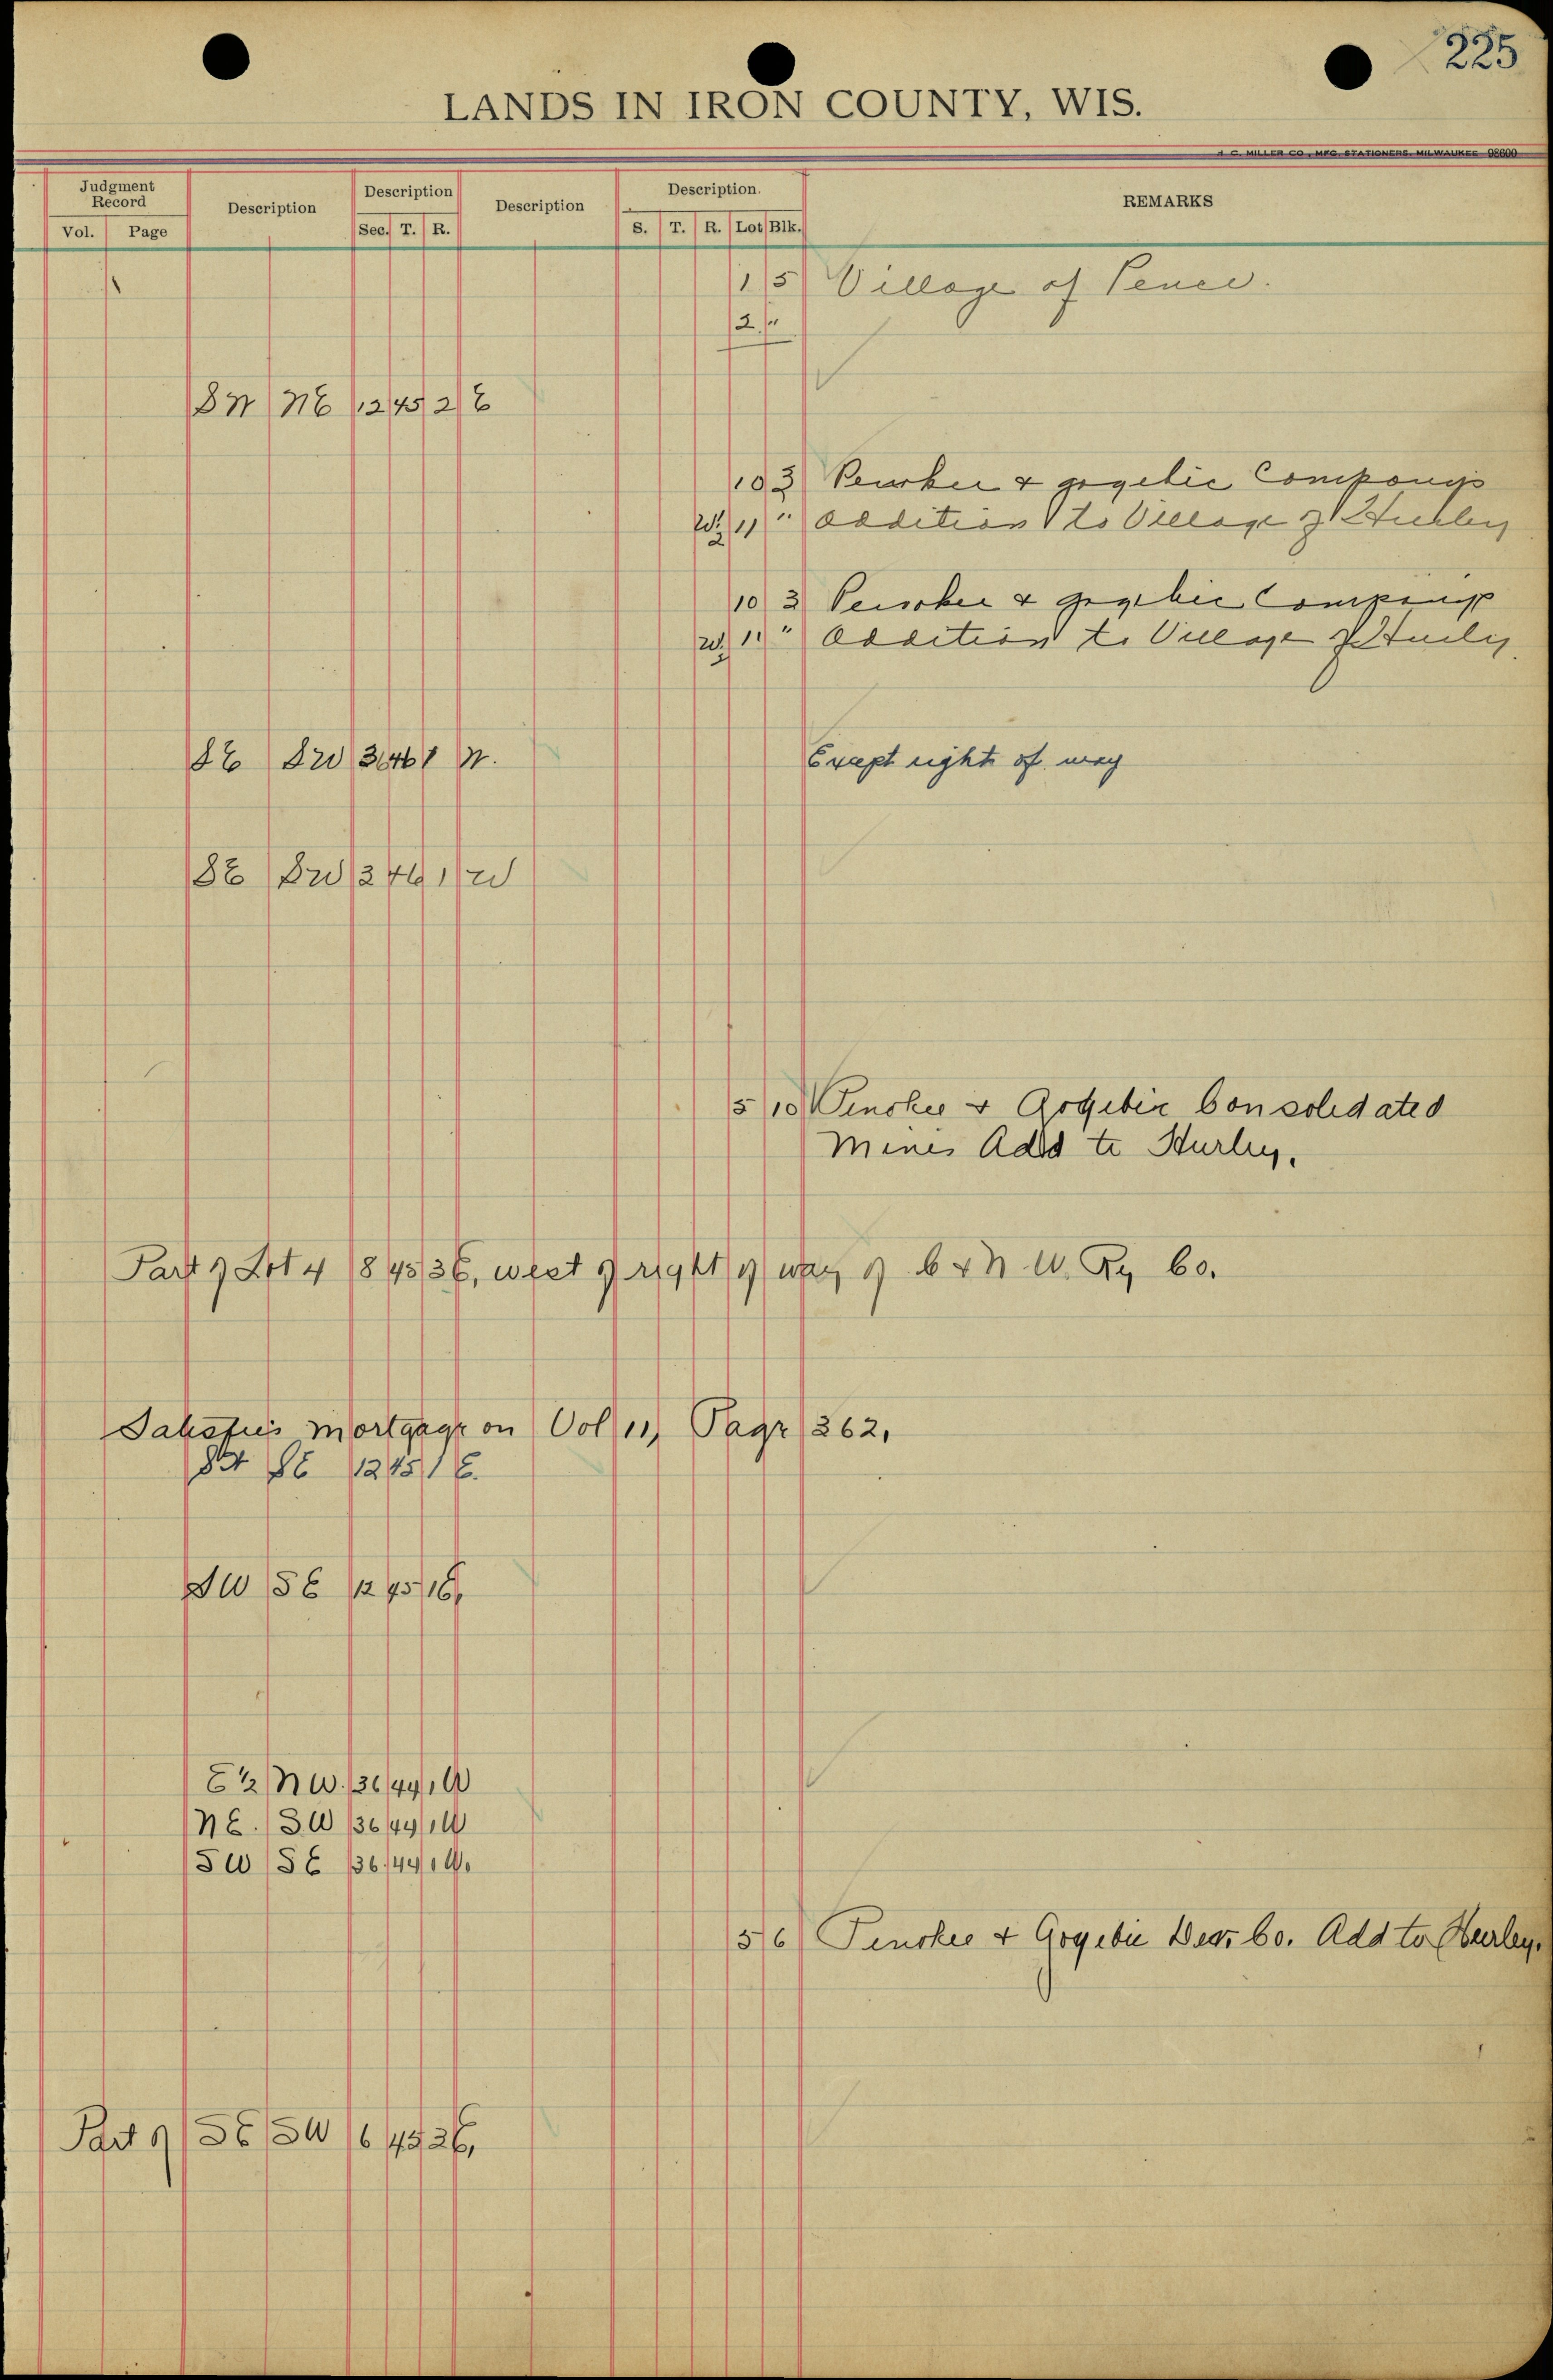 225
LANDS IN IRON COUNTY, WIS.
H. C. MILLER CO., MFG. STATIONERS, MILWAUKEE 98600
Judgment Record Description Description Description Description. REMARKS
Vol. Page Sec. T. R. S. T. R. Lot Blk.
1 5 Village of Pence.
2 "
NE 12 45 2 E
10 3 Penokee & Gogebic Companys
W½ 11 " Addition to Village of Hurley
10 3 Penokee & Gogebic Companys
W½ 11 " Addition to Village of Hurley
SE SW 36 46 1 W. Except right of way
SE SW 2 46 1 W
5 10 Penokee & Gogebic Consolidated
Mines Add to Hurley.
Part of Lot 4 18 45 3E, west of right of way of C & N. W. Ry Co.
Satisfies Mortgage on Vol 11, Page 362,
SE 12 45 1 E.
SW SE 12 45 1E,
E½ NW. 36 44 1 W
NE. SW 36 44 1 W
SW SE 36 44 1 W.
5 6 Penokee & Gogebic Dev. Co. Add to Hurley.
Part of SE SW 6 45 2E,